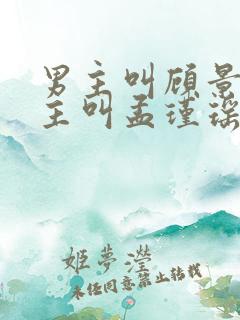 男主叫顾景
主叫孟瑾瑶
姬夢瀅
未经同意禁止转载